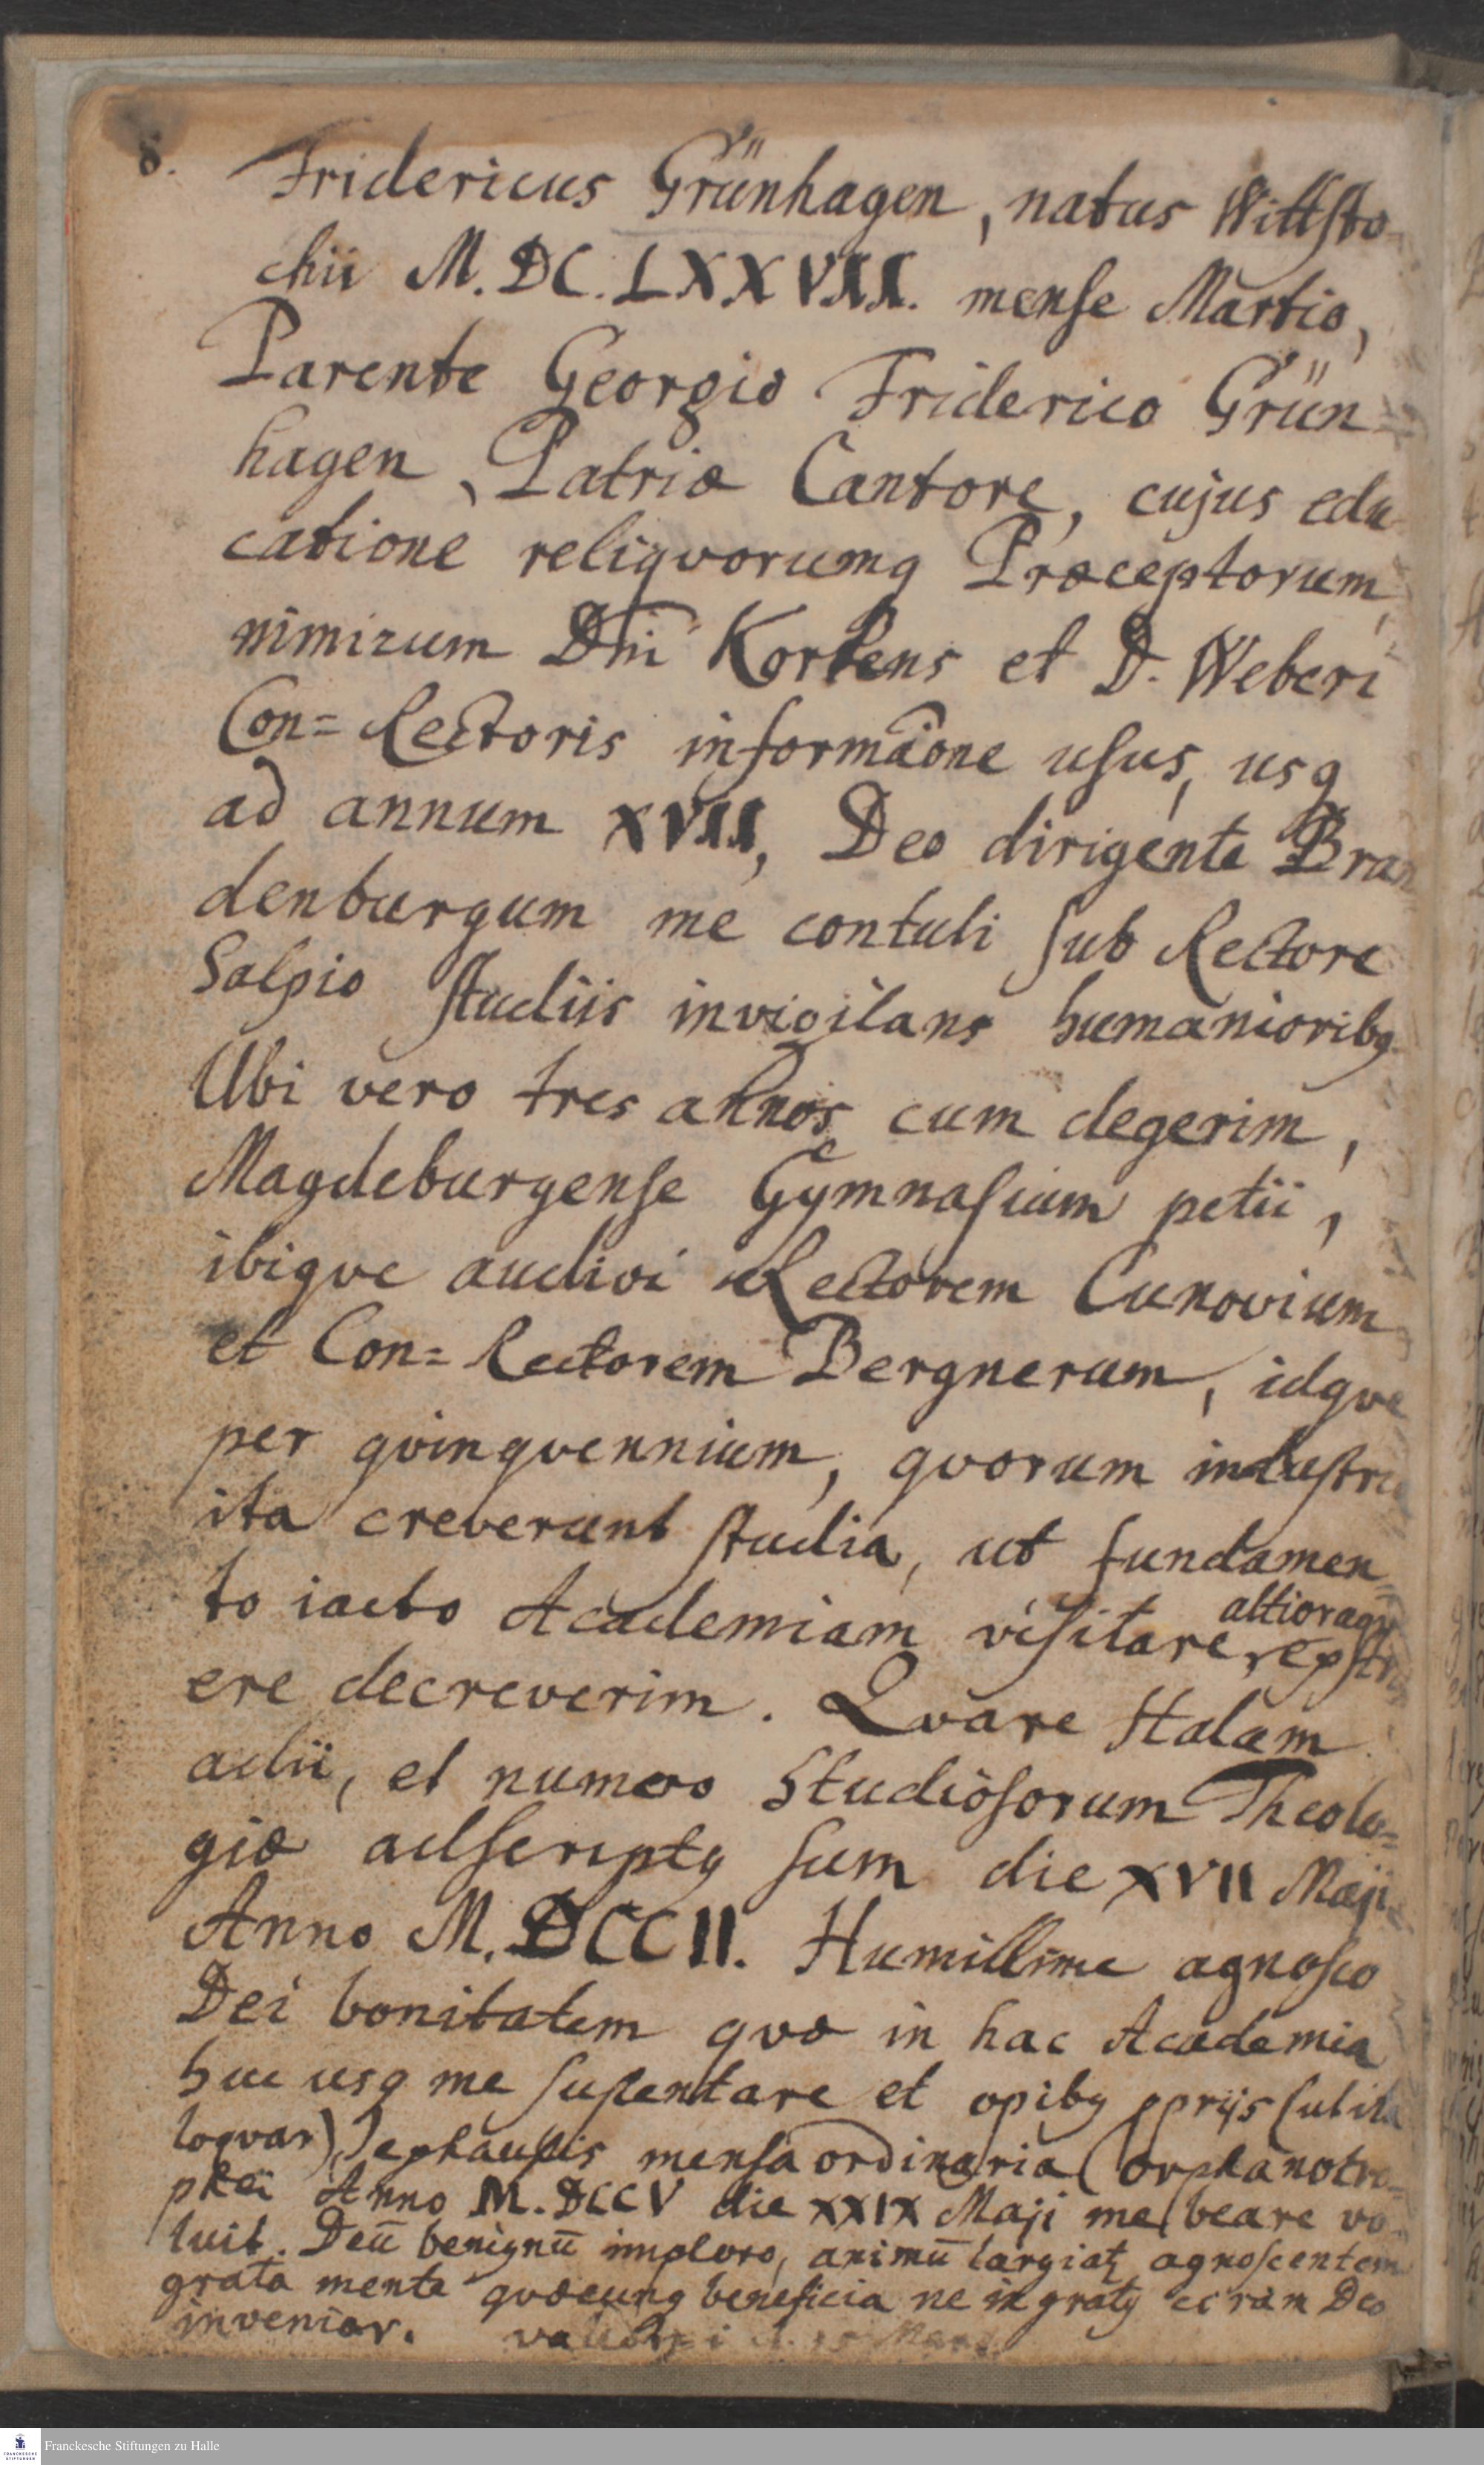 8.
Fridericus Grünhagen, natus Wittsto
chii M.DC.LXXVIII. mense Martio,
Parente Georgio Friderico Grün
hagen, Patriæ Cantore, cujus edu
catione reliqvorumq Præceptorum,
nimirum Dni Kortens et D. Weberi
Con=Rectoris informaone usus, usq
ad annum XVII, Deo dirigente Bran
denburgum me contuli sub Rectore
Salpio studiis invigilans humanioribq
Ubi vero tres annos cum degerim,
Magdeburgense Gymnasium petii,
ibiqve audivi Rectorem Cunovium
et Con=Rectorem Bergnerum, idqve
per qvinqvennium, qvorum industri
ita creverunt studia, ut fundamen
altioraq
to iacto Academiam visitare,
ere decreverim. Qvare Halam
adii, et numero Studiosorum Theolo=
giæ adscriptq sum die XVII Maji
Anno M.DCCII. Humillime agnosco
Dei bonitatem qvæ in hac Academia
huc usq me sustentare et opibq pprijs (ut ita
loqvar), exhaustis mensa ordinaria Orphanotro=
phei Anno M.DCCV die XXIX Maji me beare vo
luit. Deū benignū imploro, animū largiat agnoscentem
grata mente qvæcunq beneficia ne ingratq coram Deo
inveniar.